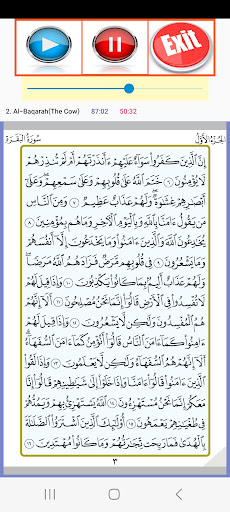 Exit
2. Al-Baqarah(The Cow) 87:02 50:32
الجزء الأول سورة البقرة
إِنَّ ٱلَّذِينَ كَفَرُوا۟ سَوَآءٌ عَلَيْهِمْ ءَأَنذَرْتَهُمْ أَمْ لَمْ تُنذِرْهُمْ
لَا يُؤْمِنُونَ ٦ خَتَمَ ٱللَّهُ عَلَىٰ قُلُوبِهِمْ وَعَلَىٰ سَمْعِهِمْ وَعَلَىٰٓ
أَبْصَـٰرِهِمْ غِشَـٰوَةٌ وَلَهُمْ عَذَابٌ عَظِيمٌ ٧ وَمِنَ ٱلنَّاسِ
مَن يَقُولُ ءَامَنَّا بِٱللَّهِ وَبِٱلْيَوْمِ ٱلْـَٔاخِرِ وَمَا هُم بِمُؤْمِنِينَ ٨
يُخَـٰدِعُونَ ٱللَّهَ وَٱلَّذِينَ ءَامَنُوا۟ وَمَا يَخْدَعُونَ إِلَّآ أَنفُسَهُمْ
وَمَا يَشْعُرُونَ ٩ فِى قُلُوبِهِم مَّرَضٌ فَزَادَهُمُ ٱللَّهُ مَرَضًا
وَلَهُمْ عَذَابٌ أَلِيمٌۢ بِمَا كَانُوا۟ يَكْذِبُونَ ١٠ وَإِذَا قِيلَ لَهُمْ
لَا تُفْسِدُوا۟ فِى ٱلْأَرْضِ قَالُوٓا۟ إِنَّمَا نَحْنُ مُصْلِحُونَ ١١ أَلَآ إِنَّهُمْ
هُمُ ٱلْمُفْسِدُونَ وَلَـٰكِن لَّا يَشْعُرُونَ ١٢ وَإِذَا قِيلَ لَهُمْ
ءَامِنُوا۟ كَمَآ ءَامَنَ ٱلنَّاسُ قَالُوٓا۟ أَنُؤْمِنُ كَمَآ ءَامَنَ ٱلسُّفَهَآءُ أَلَآ
إِنَّهُمْ هُمُ ٱلسُّفَهَآءُ وَلَـٰكِن لَّا يَعْلَمُونَ ١٣ وَإِذَا لَقُوا۟
ٱلَّذِينَ ءَامَنُوا۟ قَالُوٓا۟ ءَامَنَّا وَإِذَا خَلَوْا۟ إِلَىٰ شَيَـٰطِينِهِمْ قَالُوٓا۟ إِنَّا
مَعَكُمْ إِنَّمَا نَحْنُ مُسْتَهْزِءُونَ ١٤ ٱللَّهُ يَسْتَهْزِئُ بِهِمْ وَيَمُدُّهُمْ
فِى طُغْيَـٰنِهِمْ يَعْمَهُونَ ١٥ أُو۟لَـٰٓئِكَ ٱلَّذِينَ ٱشْتَرَوُا۟ ٱلضَّلَـٰلَةَ
بِٱلْهُدَىٰ فَمَا رَبِحَت تِّجَـٰرَتُهُمْ وَمَا كَانُوا۟ مُهْتَدِينَ ١٦
٣